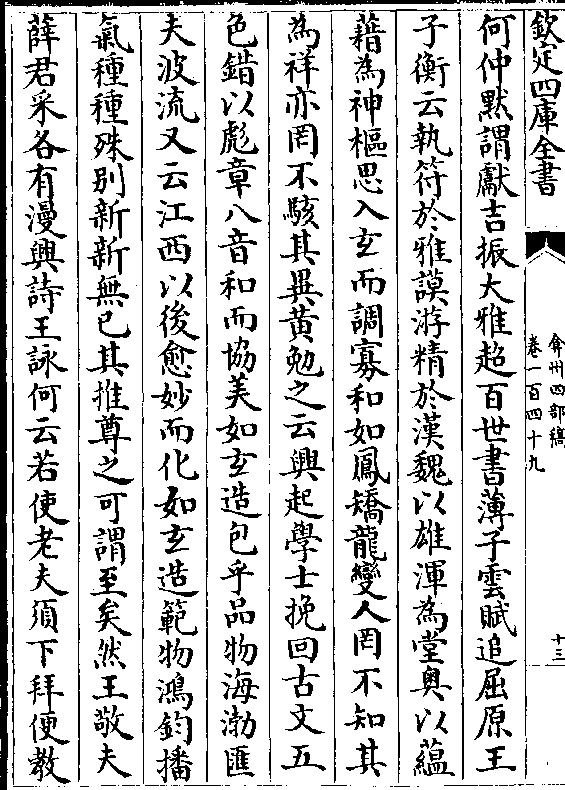 欽定四庫全書
弇州四部稿
卷一百四十九
十三
何仲默謂獻吉振大雅超百世書薄子雲賦追屈原王
子衡云執符於雅謨游精於漢魏以雄渾為堂奥以蘊
藉為神樞思入玄而調寡和如鳳矯龍變人罔不知其
為祥亦罔不駭其異黄勉之云興起學士挽回古文五
色錯以彪章八音和而協美如玄造包乎品物海渤匯
夫波流又云江西以後愈妙而化如玄造範物鴻鈞播
氣種種殊别新新無已其推尊之可謂至矣然王敬夫
薛君采各有漫興詩王詠何云若使老夫須下拜便教